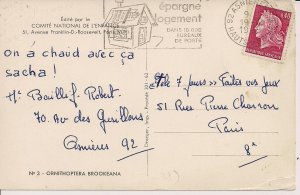 Édité par le
COMITÉ NATIONAL DE L'ENFANCE
51, Avenue Franklin-D.-Roosevelt, Paris
épargne
logement
DANS 18 000
BUREAUX
DE POSTE
92 ASN
on a chaud avec ça
sacha!
Mr Baillif Robert
70 Av des Grésillons
Asnières 92
Télé 7 Jours "Faites vos jeux
51 Rue Pierre Charron
Paris
8e
N° 3 - ORNITHOPTERA BROOKEANA